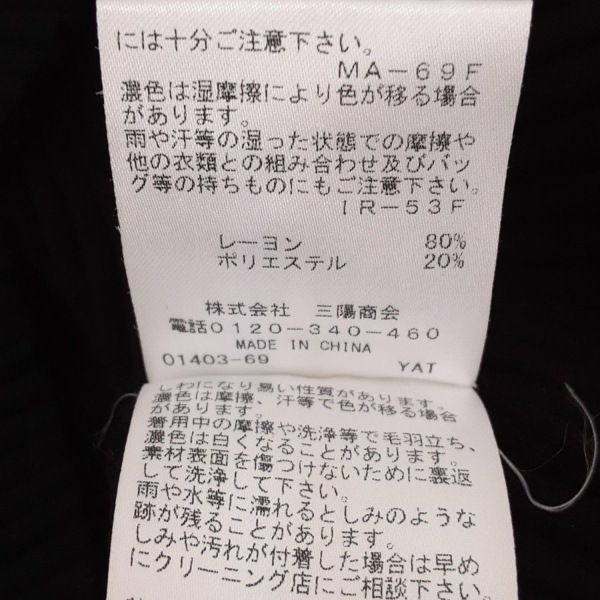 には十分ご注意下さい。
MA-69F
濃色は湿摩擦により色が移る場合
があります。
雨や汗等の湿った状態での摩擦や
他の衣類との組み合わせ及びバッ
グ等の持ちものにもご注意下さい。
IR-53F
レーヨン 80%
ポリエステル 20%
株式会社 三陽商会
電話0120-340-460
MADE IN CHINA
01403-69 YAT
しわになり易い性質があります。
濃色は摩擦、汗等で色が移る場合
があります。
着用中の摩擦や洗浄等で毛羽立ち、
濃色は白くなることがあります。
素材表面を傷つけないために裏返
して洗浄して下さい。
雨や水等に濡れるとしみのような
跡が残ることがあります。
しみや汚れが付着した場合は早め
にクリーニング店にご相談下さい。